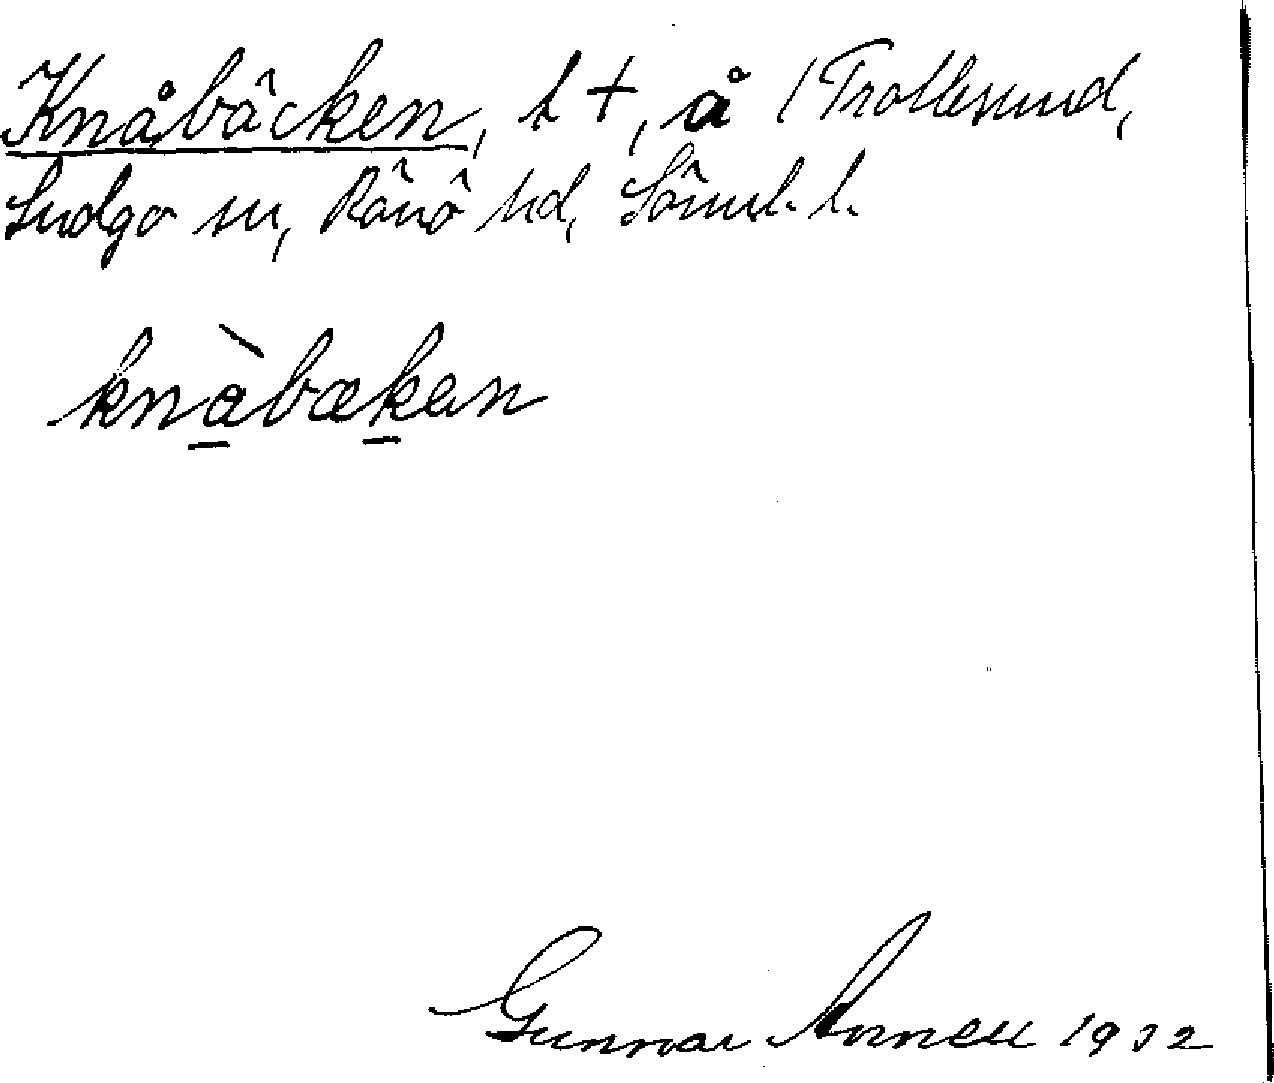 Knåbäcken, t +, å / Trollesund,
Ludgo sn, Rönö hd, Sörml. l.
knàbækan
Gunnar Arnell 1932